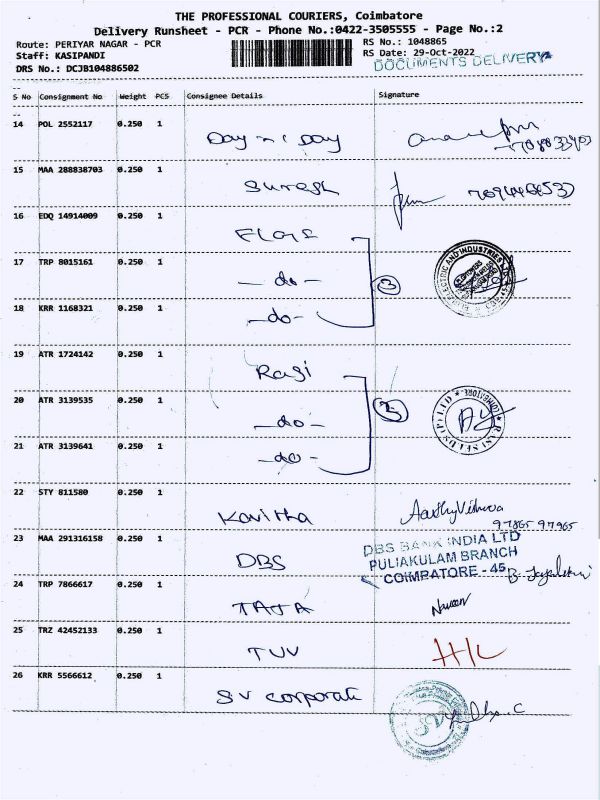 THE PROFESSIONAL COURIERS, Coimbatore
Delivery Runsheet - PCR - Phone No.:0422-3505555 - Page No.:2
Route: PERIYAR NAGAR - PCR
RS No.: 1048865
Staff: KASIPANDI
RS Date: 29-Oct-2022
DOCUMENTS DELIVERY
DRS No.: DCJB104886502
S No Consignment No Weight PCS Consignee Details Signature
14 POL 2552117 0.250 1 Day n Day
15 MAA 288838703 0.250 1 Suresh
16 EDQ 14914009 0.250 1
17 TRP 8015161 0.250 1 -do- 3
18 KRR 1168321 0.250 1 -do-
19 ATR 1724142 0.250 1 Rasi
20 ATR 3139535 0.250 1 -do- 3
21 ATR 3139641 0.250 1 -do-
22 STY 811580 0.250 1 Kavitha
97865 97965
23 MAA 291316158 0.250 1 DBS
DBS BANK INDIA LTD
PULIAKULAM BRANCH
COIMBATORE - 45
24 TRP 7866617 0.250 1 TATA Naveen
25 TRZ 42452133 0.250 1 TUV
26 KRR 5566612 0.250 1 SV Corporate